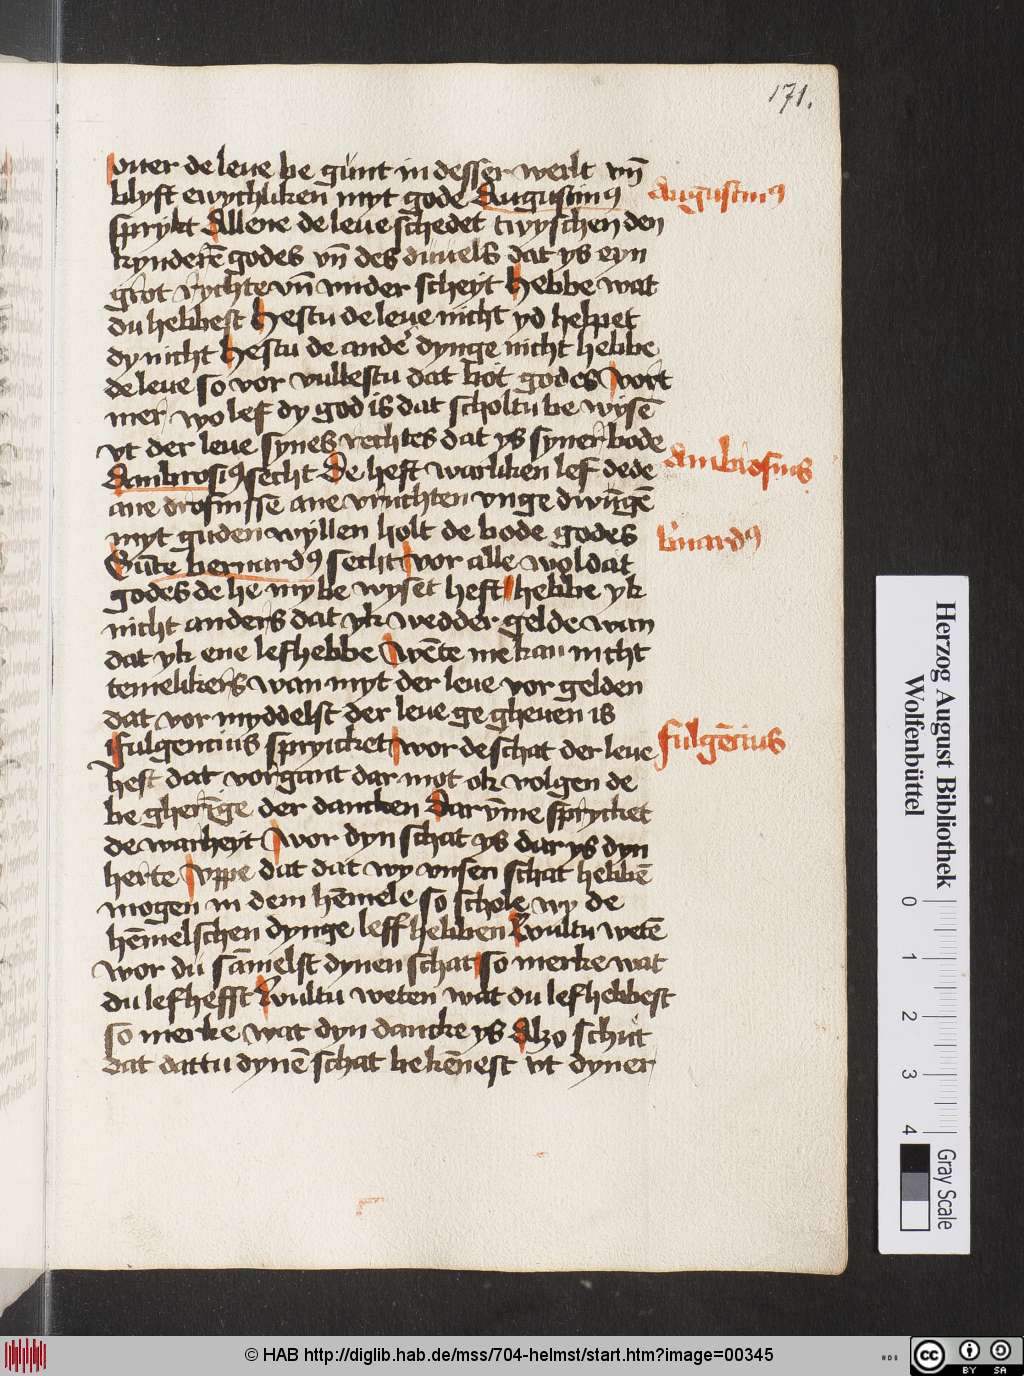 171.
ouer de leue be gunt in desser werlt vn̄
blyft ewychliken myt gode Augustin9
Augustin9
sprykt Allene de leue schedet twyschen den
kynderē godes vn̄ des duuels dat ys eyn
grot rychte vn̄ vnder scheyt hebbe wat
du hebbest hestu de leue nicht yd helpet
dy nicht hestu de ander dynge nicht hebbe
de leue so vor vullestu dat bot godes vort
mer wo lef dy god is dat scholtu be wysē
vt der leue synes rechtes dat ys syner bode
Ambrosi9 secht De heft warliken lef dede
Ambrosius
ane drofnisse ane vruchten vnge dwūgē
myt guden wyllen holt de bode godes
Sūte bernard9 secht vor alle woldat
bnard9
godes de he my be wyset heft hebbe yk
nicht anders dat yk wedder gelde wan
dat yk ene lefhebbe wēte me kan nicht
temelikers wan myt der leue vor gelden
dat vor myddelst der leue ge gheuen is
Fulgencius sprycket wor de schat der leue
fulgēcius
hest dat vorgant dar mot ok volgen de
be gherīge der dancken Dar vm̄e sprycket
de warheyt wor dyn schat ys dar ys dyn
herte vppe dat dat wy vnsen schat hebbē
mogen in dem hēmele so schole wy de
hēmelschen dynge leff hebben wultu wetē
wor du sāmelst dynen schat so merke wat
du lefhefft wultu weten wat du lefhebbest
so merke wat dyn dancke ys Alzo schut
dat dattu dynē schat bekēnest vt dyner
Herzog August Bibliothek
Wolfenbüttel
0 1 2 3 4
Gray Scale
© HAB http://diglib.hab.de/mss/704-helmst/start.htm?image=00345
cc BY SA